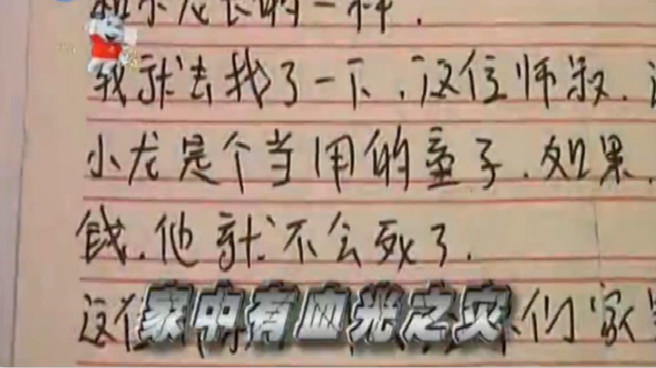 和小龙长的一样.
我就去找了一下,这位师叔,
小龙是个当用的童子.如果.
钱.他就不会死了.
这位
们家
家中有血光之灾